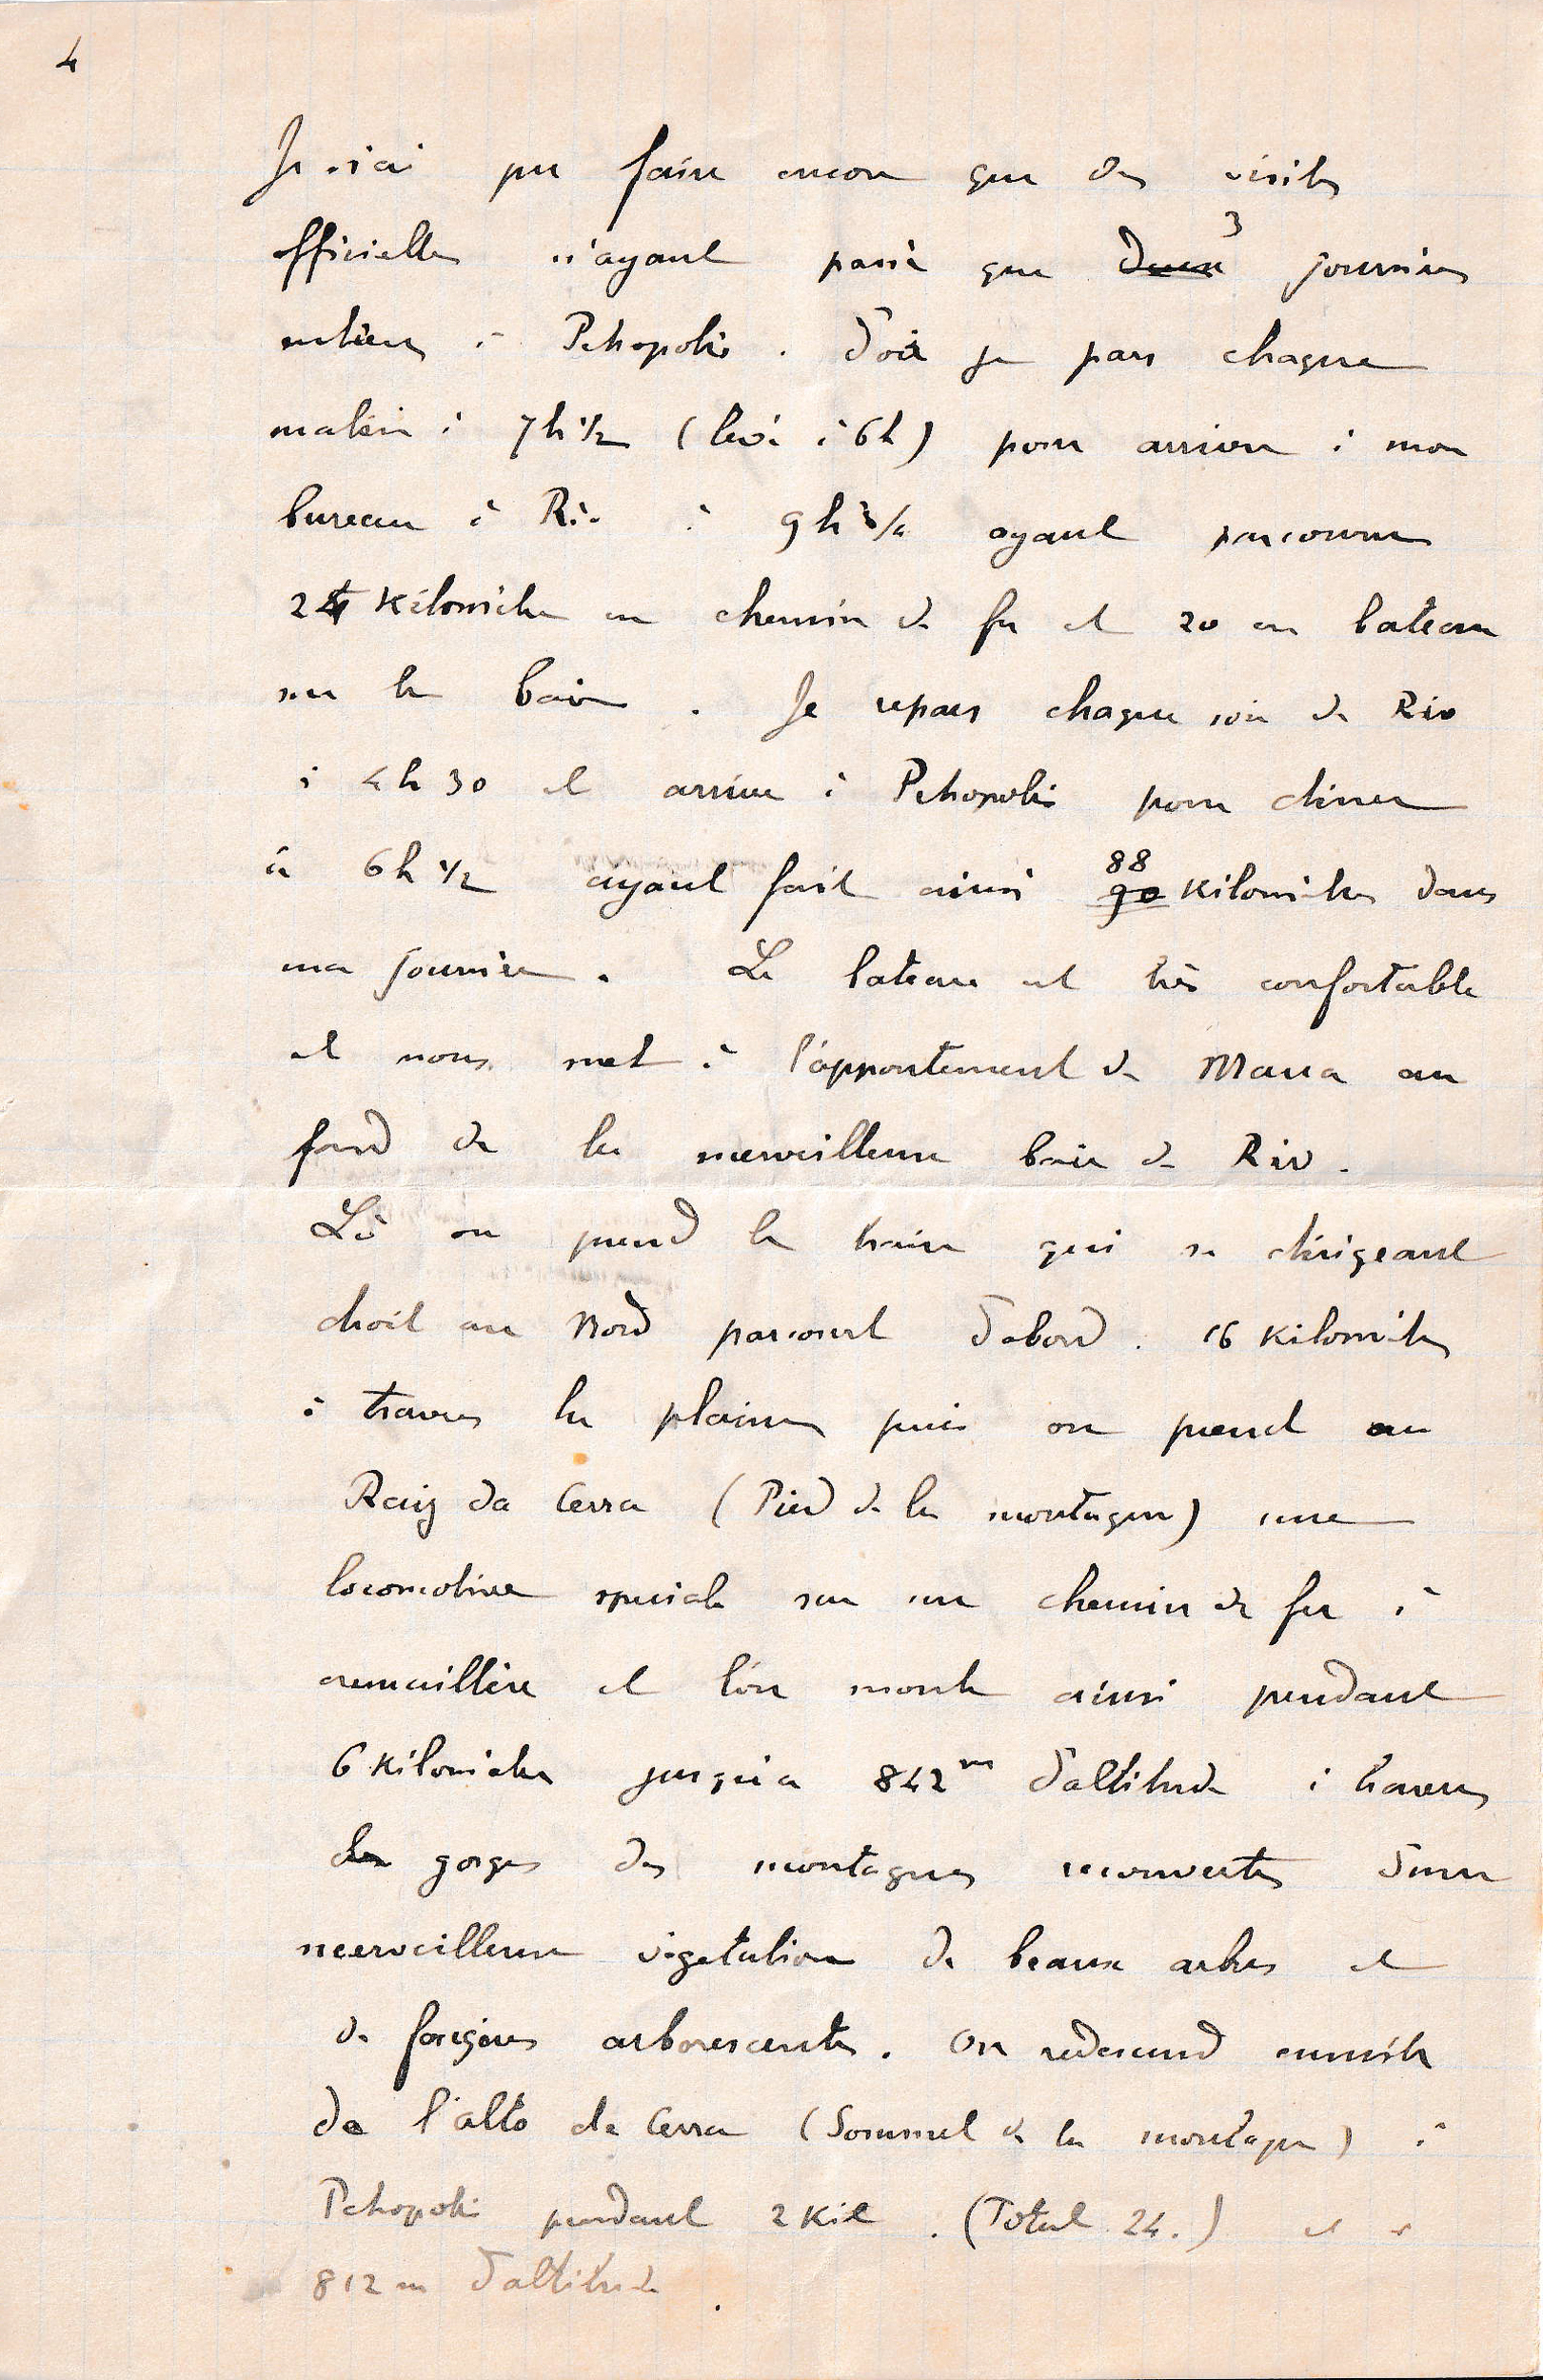 4
Je n'ai pu faire encore que des visites
officielles n'ayant passé que deux 3 journées
entières à Petropolis. D'où je pars chaque
matin à 7h 1/2 (levé à 6h) pour arriver à mon
bureau à Rio à 9h 3/4 ayant parcouru
24 Kilomètres en chemin de fer et 20 en bateau
sur la baie. Je repars chaque soir de Rio
à 4h 30 et arrive à Petropolis pour diner
à 6h 1/2 ayant fait ainsi 90 88 Kilomètres dans
ma journée. Le bateau est très confortable
et nous met à l'appontement de Maua au
fond de la merveilleuse baie de Rio.
Là on prend le train qui se dirigeant
droit au Nord parcourt d'abord 16 Kilomètres
à travers la plaine puis on prend au
Raiz da Cerra (Pied de la montagne) une
locomotive speciale sur un chemin de fer à
cremaillère et l'on monte ainsi pendant
6 Kilomètres jusqu'a 842m d'altitude à travers
les gorges des montagnes recouvertes d'une
merveilleuse végetation de beaux arbres et
de fougères arborescentes. On redescend ensuite
de l'alto da Cerra (Sommet de la montagne) à
Petropolis pendant 2 Kil. (Total 24.) et à
812 m d'altitude.